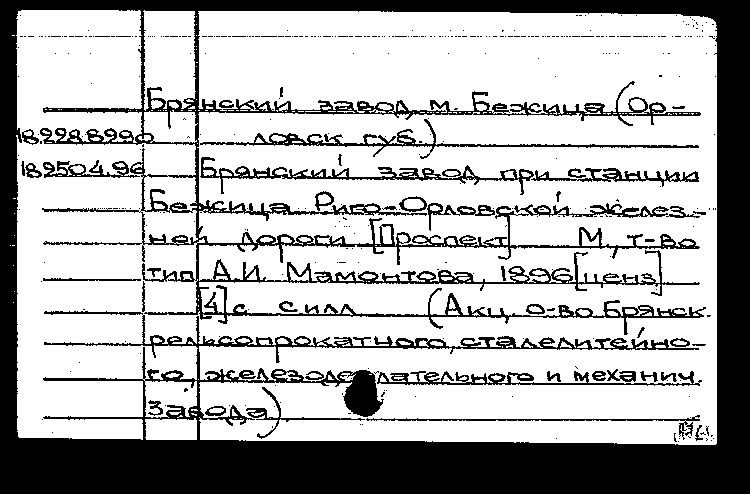 Брянский завод, м. Бежица (Ор-
189228990 ловск. губ.)
189504.96 Брянский завод при станции
Бежица Риго-Орловской желез-
ной дороги [Проспект] М., т-во
тип. А.И. Мамонтова, 1896 [ценз]
[4] с. с илл (Акц. о-во Брянск.
рельсопрокатного, сталелитейно-
го, железоделательного и механич.
завода)